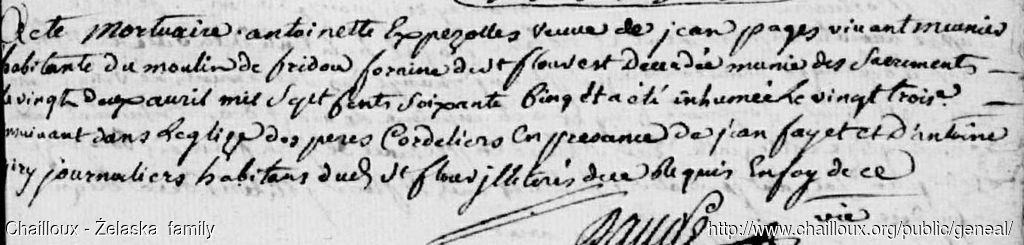 Acte Mortuaire antoinette Expezolles veuve de jean pages vivant meunier
habitante du moulin de fridou foraine de st flour est decedée munie des sacrements
le vingt deux avril mil sept cents soixante cinq et a été inhumée le vingt trois
suivant dans leglize des peres Cordeliers en presance de jean fayet et d'antoine
journaliers habitans dud st flour illeterés de ce requis en foy de ce
vic
Chailloux - Żelaska family
http://www.chailloux.org/public/geneal/